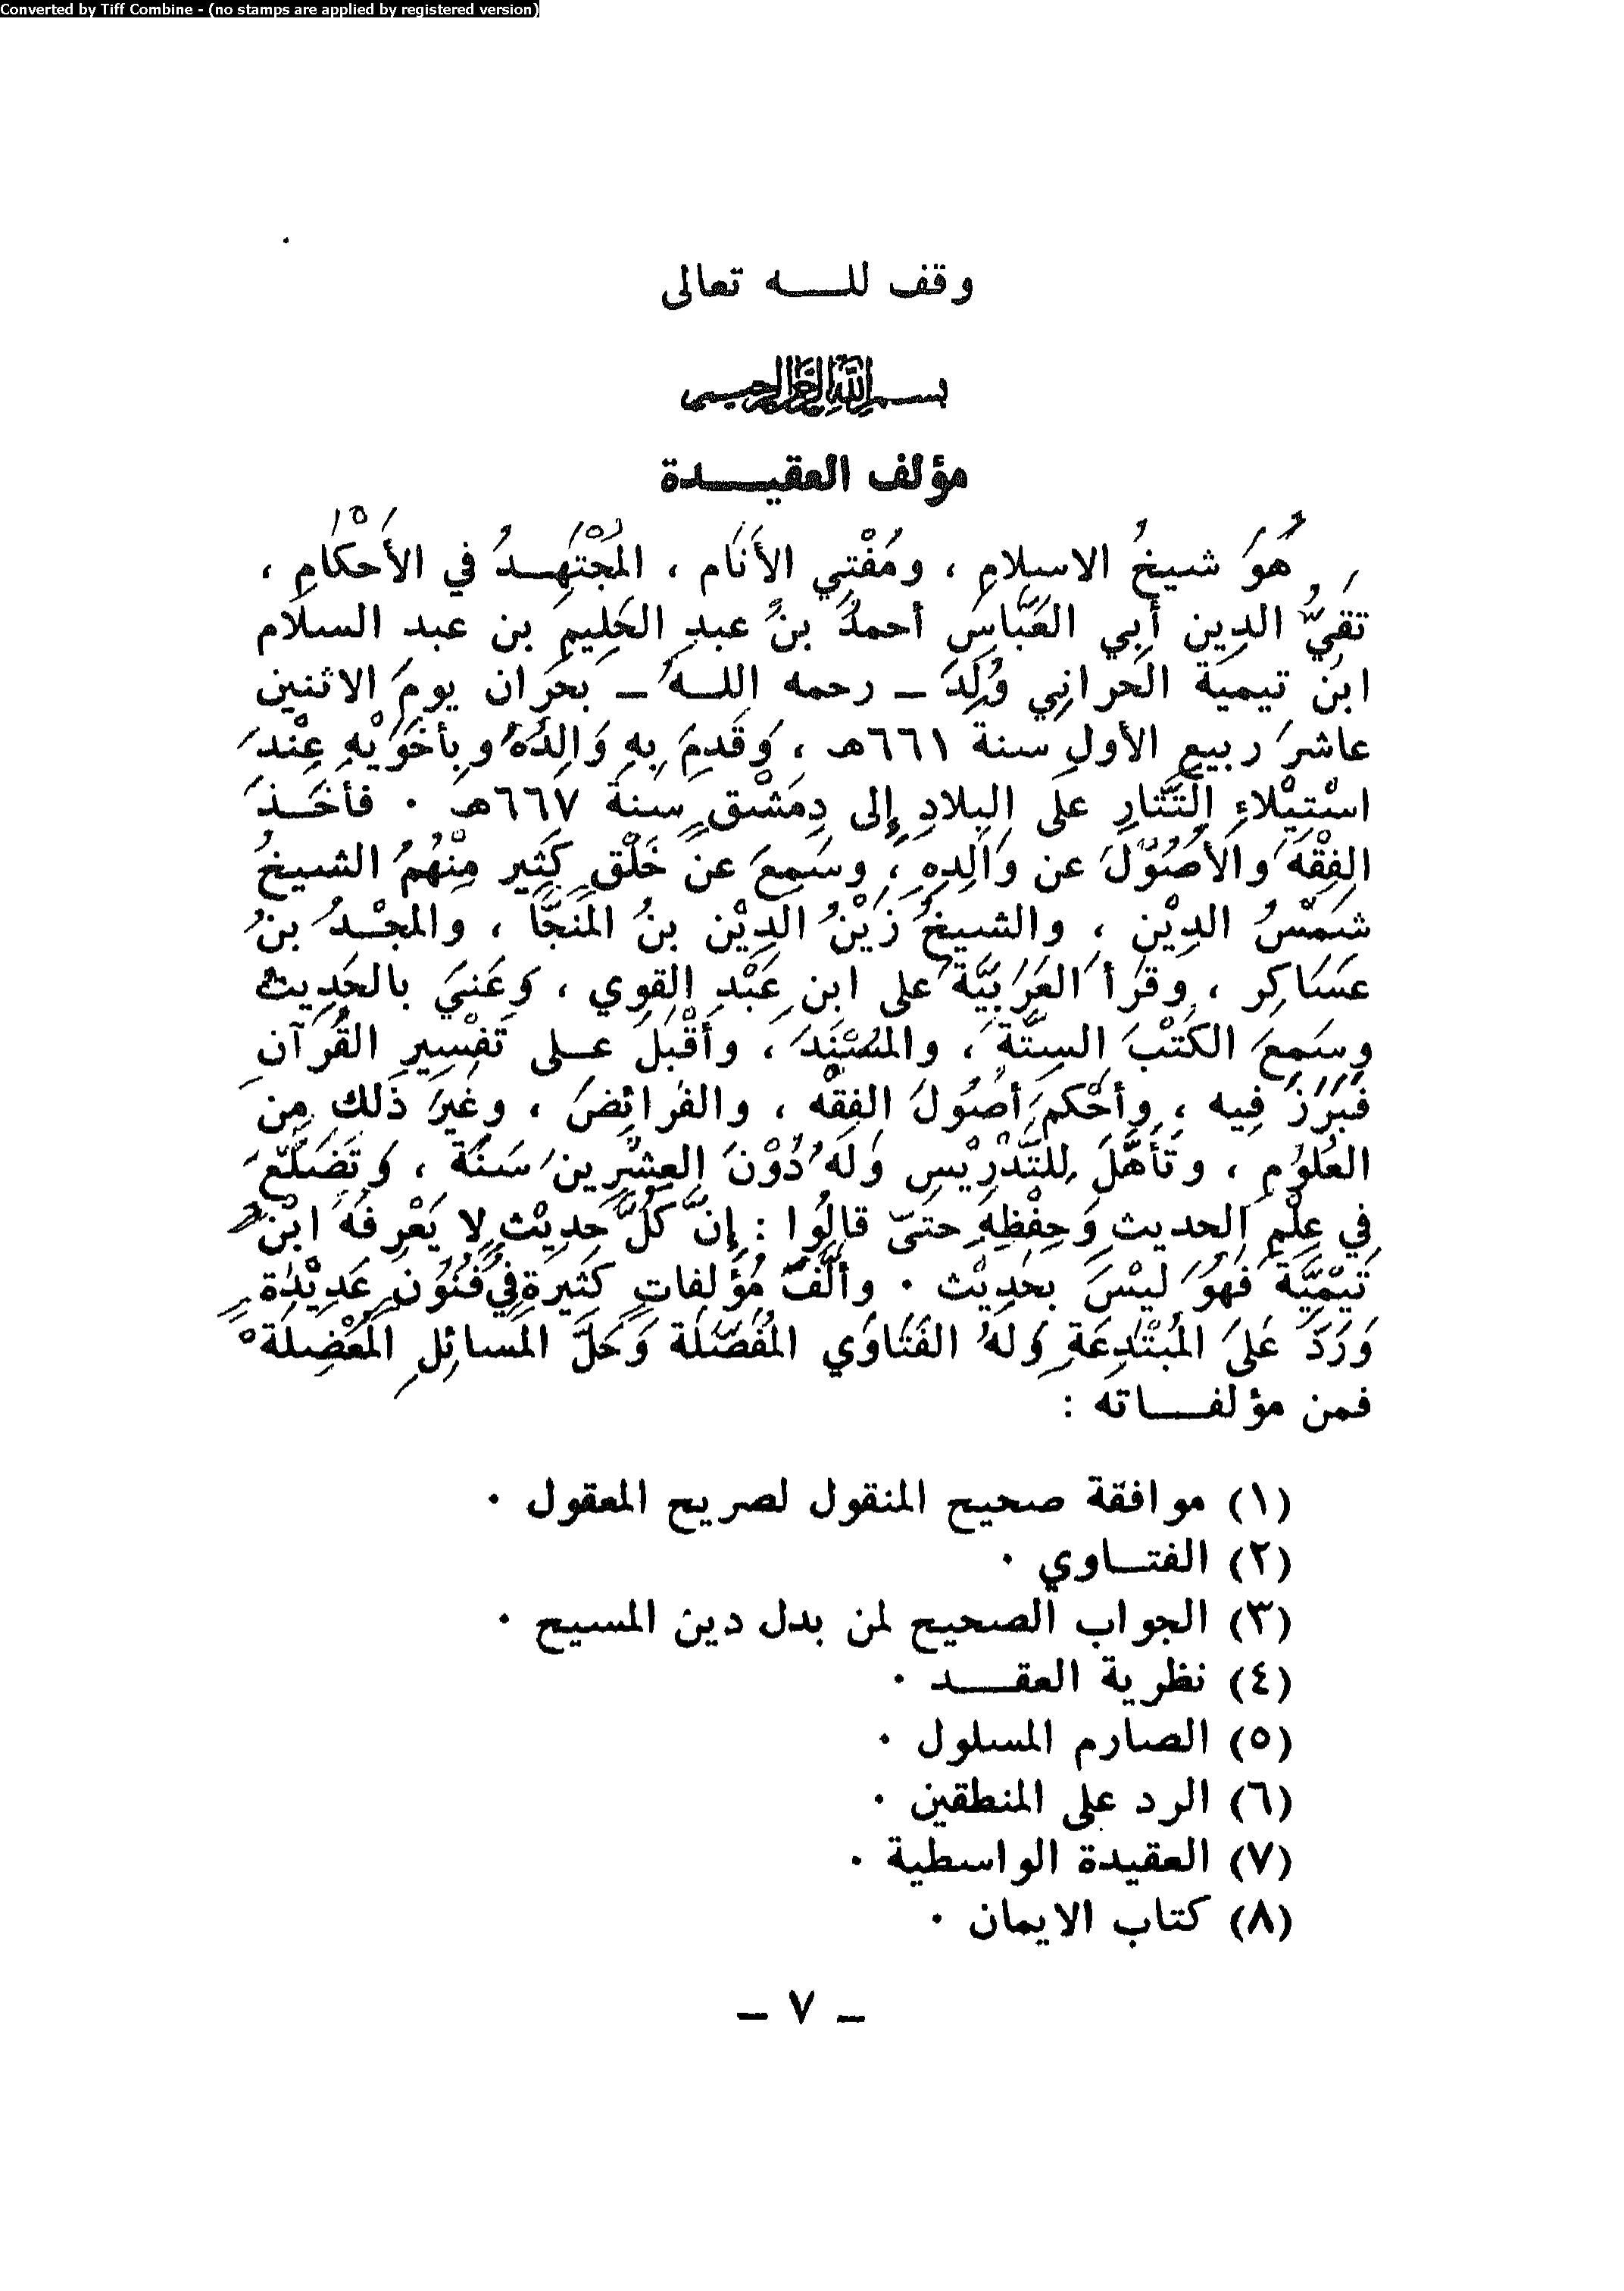 Converted by Tiff Combine - (no stamps are applied by registered version)
وقف للـــه تعالى
بسم الله الرحمن الرحيم
مؤلف العقيـــدة
هُوَ شيخُ الاسلامِ ، ومُفْتِي الأَنَام ، المُجْتَهِـدُ في الأَحْكَامِ ،
تَقِيُّ الدِين أَبِي العَبَّاسِ أحمدُ بنُ عبدِ الحَلِيمِ بن عبد السلام
ابن تيمية الحرانِي وُلِدَ – رحمه اللـهُ – بحَرِان يومَ الاثنين
عاشرَ ربيع الأولِ سنة ٦٦١هـ ، وَقَدِمَ بِهِ وَالِدُهُ وبِأخَوَيْهِ عِنْدَ
اسْتِيْلاءِ التَّتَارِ على البِلادِ إِلى دِمَشْق سنةَ ٦٦٧هـ . فأخَـذَ
الفِقْهَ والأصُوْلَ عن وَالِدِهِ ، وسَمِعَ عنْ خَلْقٍ كَثِيرٍ مِنْهُمُ الشيخُ
شَمْسُ الدِيْنِ ، والشيخُ زَيْنُ الدِيْن بنُ المُنَجَّا ، والمجْـدُ بنُ
عسَاكِر ، وقرأ العَرَبِيَّةَ على ابن عَبْدِ القوِي ، وَعَنيَ بالحَدِيث
وسَمِعَ الكتْبَ السِتَّةَ ، والمُسْنَدَ ، وأقْبَلَ عـلى تَفْسِيرِ القُرآنِ
فَبَرَزَ فِيه ، وأحْكمَ أصُولَ الفِقْه ، والفَرائِضَ ، وغَيرَ ذَلك مِن
العُلُومِ ، وتَأَهَّلَ لِلتَّدْرِيْسِ وَلَهُ دُوْنَ العِشْرِينَ سَنَةً ، وَتَضَلَّعَ
فِي عِلْمِ الحديثِ وَحِفْظِهِ حتَىّ قالُوا : إِنَّ كُلَّ حدِيْثٍ لا يَعْرِفهُ ابْنُ
تَيْمِيَّةَ فَهُوَ ليْسَ بحَدِيْث . وألَّفَ مُؤَلفاتٍ كَثِيرةٍ فِي فُنُوْنٍ عَدِيْدَةٍ
وَرَدَّ عَلىَ المُبْتَدِعَةِ وَلَهُ الفَتَاوَي المُفَصَّلَة وَحَلَّ المَسائِلِ المُعْضِلَةْ
فمن مؤلفـــاته :
(١) موافقة صحيح المنقول لصريح المعقول .
(٢) الفتـاوي .
(٣) الجواب الصحيح لمن بدل دين المسيح .
(٤) نظرية العقـــد .
(٥) الصارم المسلول .
(٦) الرد على المنطقين .
(٧) العقيدة الواسطية .
(٨) كتاب الايمان .
– ٧ –